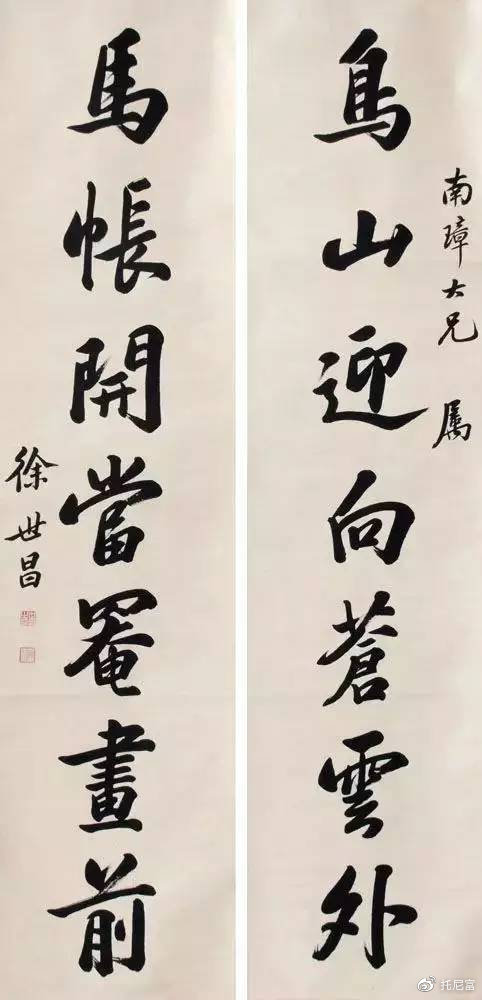 南璋大兄 属
鳥山迎向蒼雲外
馬帳開當罨畫前
徐世昌
托尼富